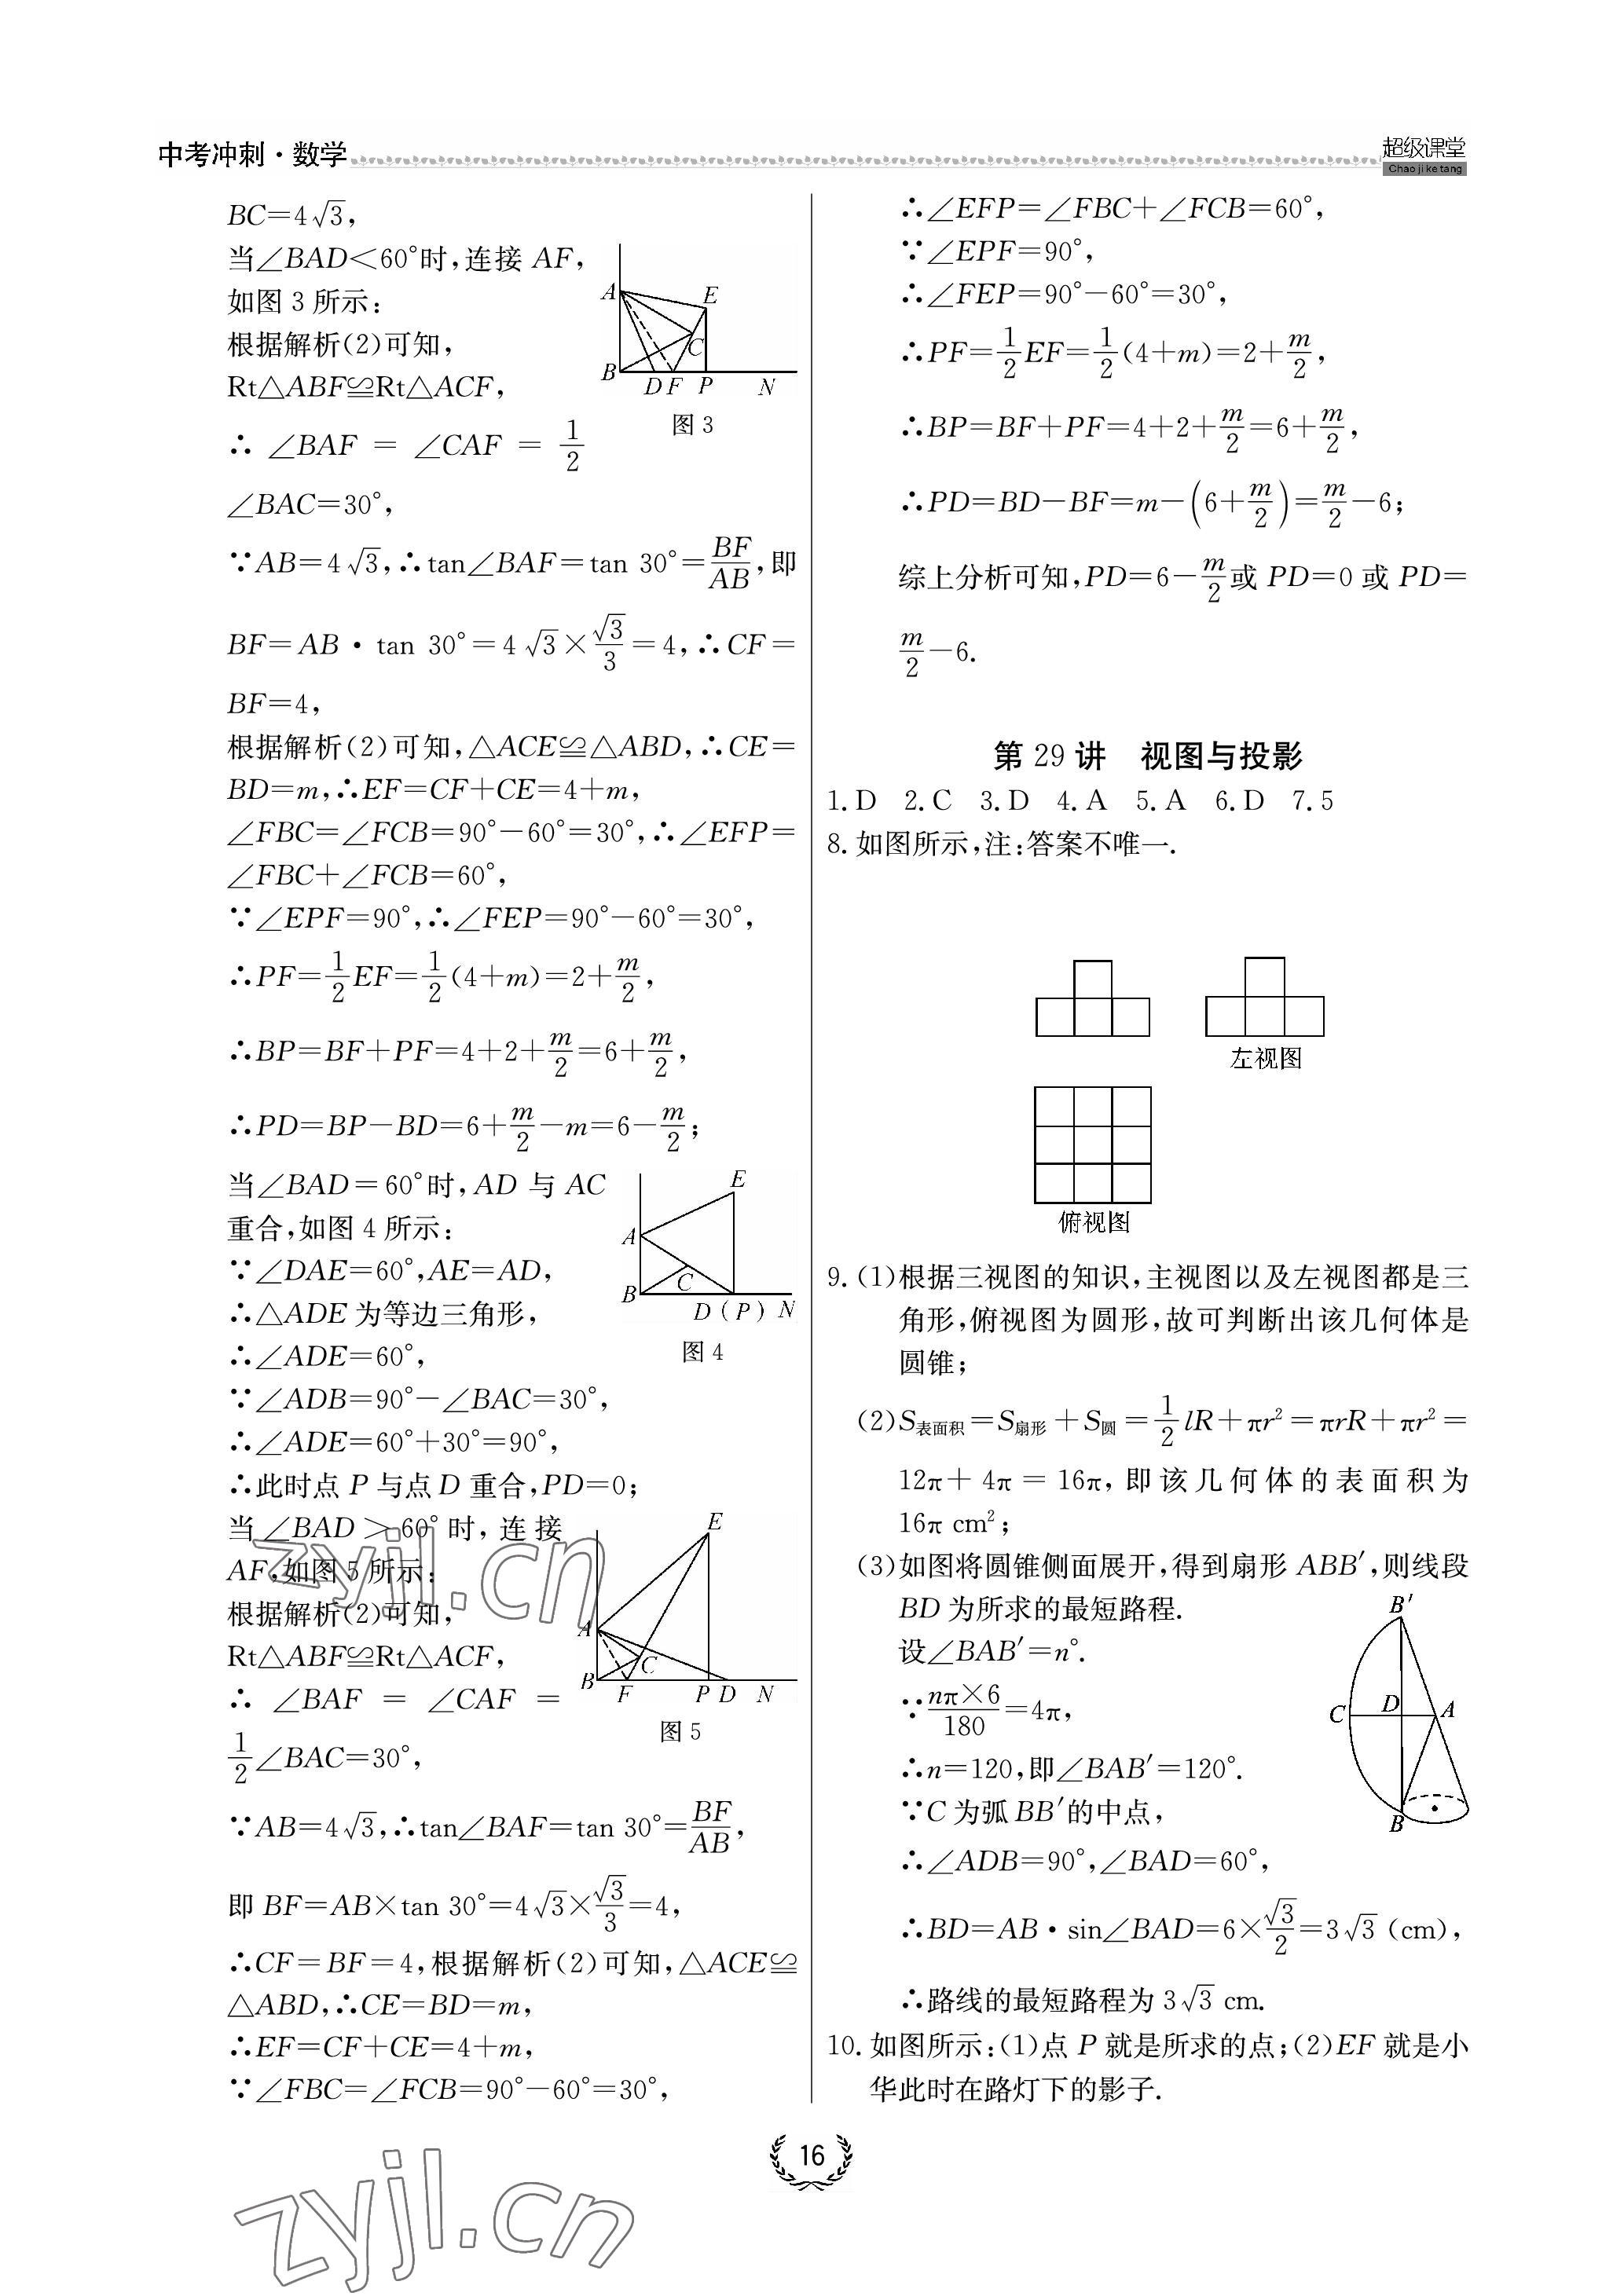 中考冲刺·数学
超级课堂
Chao ji ke tang
BC=4√3,
当∠BAD<60°时,连接 AF,
如图 3 所示:
根据解析(2)可知,
Rt△ABF≌Rt△ACF,
∴ ∠BAF = ∠CAF = 1/2
∠BAC=30°,
A E C B D F P N
图 3
∵AB=4√3,∴tan∠BAF=tan 30°=BF/AB,即
BF=AB·tan 30°=4√3×√3/3=4,∴CF=
BF=4,
根据解析(2)可知,△ACE≌△ABD,∴CE=
BD=m,∴EF=CF+CE=4+m,
∠FBC=∠FCB=90°-60°=30°,∴∠EFP=
∠FBC+∠FCB=60°,
∵∠EPF=90°,∴∠FEP=90°-60°=30°,
∴PF=1/2EF=1/2(4+m)=2+m/2,
∴BP=BF+PF=4+2+m/2=6+m/2,
∴PD=BP-BD=6+m/2-m=6-m/2;
当∠BAD=60°时,AD 与 AC
重合,如图 4 所示:
∵∠DAE=60°,AE=AD,
∴△ADE 为等边三角形,
∴∠ADE=60°,
E A C B D(P) N
图 4
∵∠ADB=90°-∠BAC=30°,
∴∠ADE=60°+30°=90°,
∴此时点 P 与点 D 重合,PD=0;
当∠BAD>60°时,连接
AF,如图 5 所示:
根据解析(2)可知,
Rt△ABF≌Rt△ACF,
∴ ∠BAF = ∠CAF =
1/2∠BAC=30°,
E A C B F P D N
图 5
∵AB=4√3,∴tan∠BAF=tan 30°=BF/AB,
即 BF=AB×tan 30°=4√3×√3/3=4,
∴CF=BF=4,根据解析(2)可知,△ACE≌
△ABD,∴CE=BD=m,
∴EF=CF+CE=4+m,
∵∠FBC=∠FCB=90°-60°=30°,
∴∠EFP=∠FBC+∠FCB=60°,
∵∠EPF=90°,
∴∠FEP=90°-60°=30°,
∴PF=1/2EF=1/2(4+m)=2+m/2,
∴BP=BF+PF=4+2+m/2=6+m/2,
∴PD=BD-BF=m-(6+m/2)=m/2-6;
综上分析可知,PD=6-m/2或 PD=0 或 PD=
m/2-6.
第 29 讲 视图与投影
1.D 2.C 3.D 4.A 5.A 6.D 7.5
8.如图所示,注:答案不唯一.
左视图
俯视图
9.(1)根据三视图的知识,主视图以及左视图都是三
角形,俯视图为圆形,故可判断出该几何体是
圆锥;
(2)S表面积=S扇形+S圆=1/2lR+πr²=πrR+πr²=
12π+4π=16π,即该几何体的表面积为
16π cm²;
(3)如图将圆锥侧面展开,得到扇形 ABB′,则线段
BD 为所求的最短路程.
设∠BAB′=n°.
∵nπ×6/180=4π,
∴n=120,即∠BAB′=120°.
∵C 为弧 BB′的中点,
B′ C D A B
∴∠ADB=90°,∠BAD=60°,
∴BD=AB·sin∠BAD=6×√3/2=3√3 (cm),
∴路线的最短路程为 3√3 cm.
10.如图所示:(1)点 P 就是所求的点;(2)EF 就是小
华此时在路灯下的影子.
16
zyjl.cn
zyjl.cn